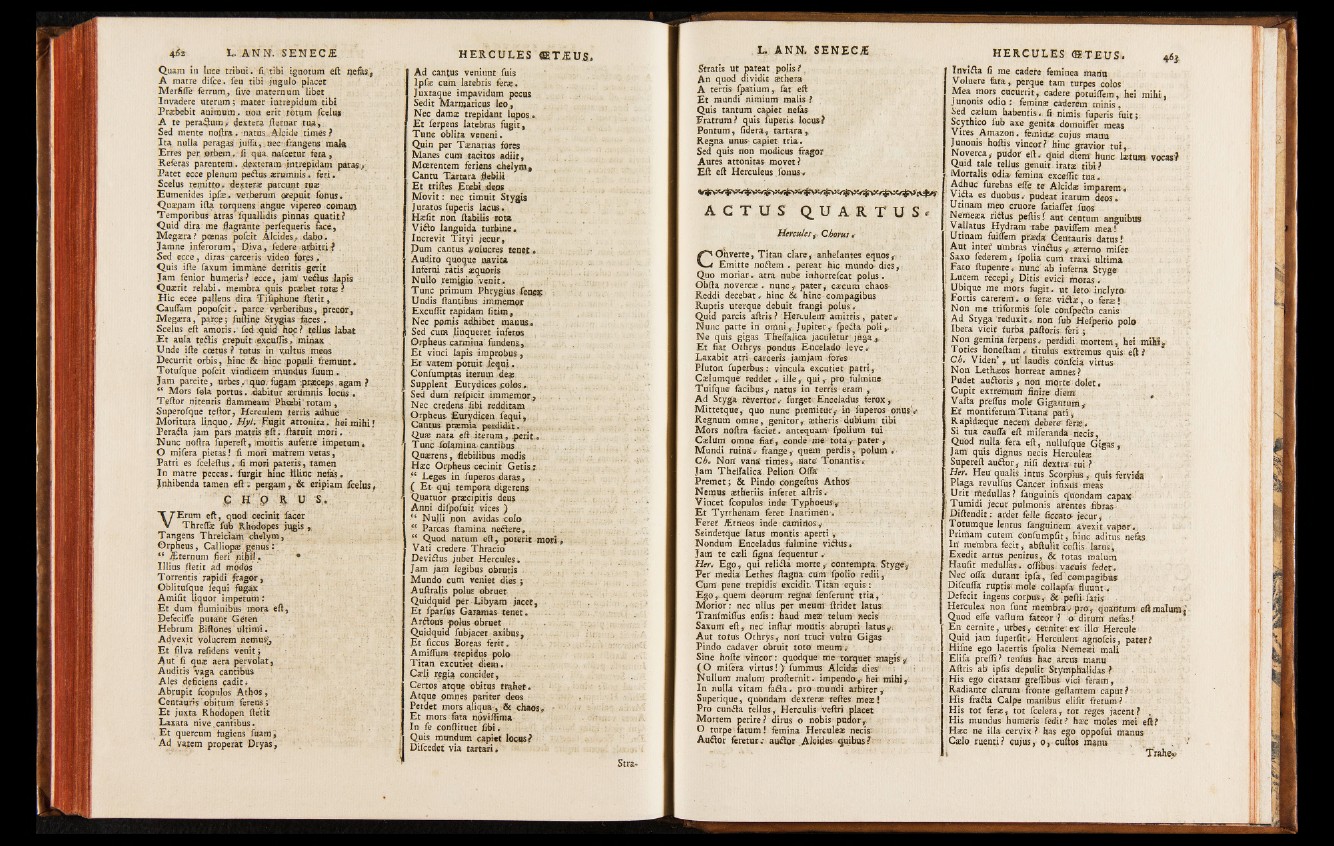 462 L. ANN. SENECÆ
Quam in luce tribui. ſi tibi ignotum eſt nefas,
A matre diſce. ſeu tibi jugulo placet
Merſiſſe ferrum, ſive maternum libet
Invadere uterum; mater intrepidum tibi
Præbebit animum. non erit totum ſcelus
A te peractum, dextera ſternar tua,
Sed mente noſtra. natus Alcide times?
Ita nulla peragas juſſa, nec frangens mala
Erres per orbem. ſi qua naſcetur fera,
Referas parentem. dexteram intrepidam paras,
Patet ecce plenum pectus ærumnis. feri.
Scelus remitto. dexteræ parcunt tuæ
Eumenides ipſæ. verberum crepuit ſonus.
Quænam iſta torquens angue vipereo comam
Temporibus atras ſquallidis pinnas quatit?
Quid dira me flagrante perſequeris face,
Megæra? pœnas poſcit Alcides, dabo.
Jamne inferorum, Diva, ſedere arbitri?
Sed ecce, diras carceris video fores.
Quis iſte ſaxum immane detritis gerit
Jam ſenior humeris? ecce, jam vectus lapis
Quærit relabi. membra quis præbet rotæ?
Hic ecce pallens dira Tiſiphone ſtetit,
Cauſſam popoſcit. parce verberibus, precor,
Megæra, parce; ſuſtine Stygias faces.
Scelus eſt amoris. ſed quid hoc? tellus labat
Et aula tectis crepuit excuſſis, minax
Unde iſte cœtus? totus in vultus meos
Decurrit orbis, hinc & hinc populi fremunt.
Totuſque poſcit vindicem mundus ſuum.
Jam parcite, urbes. quo fugam præceps agam?
“ Mors ſola portus. dabitur ærumnis locus.
Teſtor nitentis flammeam Phœbi rotam,
Superoſque teſtor, Herculem terris adhuc
Moritura linquo. Hyl. Fugit attonita. hei mihi!
Peracta jam pars matris eſt. ſtatuit mori.
Nunc noſtra ſupereſt, mortis auferre impetum.
O miſera pietas! ſi mori matrem vetas,
Patri es ſceleſtus. ſi mori pateris, tamen
In matre peccas. furgit hinc illinc nefas.
Inhibenda tamen eſt. pergam, & eripiam ſcelus,
CHORUS.
VErum eſt, quod cecinit ſacer
Threſſæ ſub Rhodopes jugis,
Tangens Threiciam chelym,
Orpheus, Calliopæ genus:
“ Æternum fieri nihil.
Illius ſtetit ad modos
Torrentis rapidi fragor,
Oblituſque ſequi fugax
Amiſit liquor impetum:
Et dum fluminibus mora eſt,
Defeciſſe putant Geten
Hebrum Biſtones ultimi.
Advexit volucrem nemus,
Et ſilva reſidens venit;
Aut ſi quæ aera pervolat,
Auditis vaga cantibus
Ales deficiens cadit.
Abrupit ſcopulos Athos,
Centauris obitum ferens;
Et juxta Rhodopen ſtetit
Laxata nive cantibus.
Et quercum fugiens ſuam,
Ad vatem properat Dryas,
HERCULES ŒTÆUS.
Ad cantus veniunt ſuis
Ipſæ cum latebris feræ.
Juxtaque impavidum pecus
Sedit Marmaricus leo,
Nec damæ trepidant lupos.
Et ſerpens latebras fugit,
Tunc oblita veneni.
Quin per Tænarias fores
Manes cum tacitos adiit,
Mœrentem feriens chelym,
Cantu Tartara flebili
Et triſtes Erebi deos
Movit: nec timuit Stygis
Juratos ſuperis lacus.
Hæſit non ſtabilis rota
Victo languida turbine.
Increvit Tityi jecur,
Dum cantus volucres tenet.
Audito quoque navita
Inferni ratis æquoris
Nullo remigio venit.
Tunc primum Phrygius ſenex
Undis ſtantibus immemor
Excuſſit rapidam ſitim,
Nec pomis adhibet manus.
Sed cum linqueret inferos
Orpheus carmina fundens,
Et vinci lapis improbus,
Et vatem potuit ſequi.
Conſumptas iterum deæ
Supplent Eurydices colos.
Sed dum reſpicit immemor,
Nec credens ſibi redditam
Orpheus Eurydicen ſequi,
Cantus præmia perdidit.
Quæ nata eſt iterum, perit.
Tunc ſolamina cantibus
Quærens, flebilibus modis
Hæc Orpheus cecinit Getis:
“ Leges in ſuperos datas,
( Et qui tempora digerens
Quatuor præcipitis deus
Anni diſpoſuit vices )
“ Nulli non avidas colo
“ Parcas ſtamina nectere,
“ Quod natum eſt, poterit mori,
Vati credere Thracio
Devictus jubet Hercules.
Jam jam legibus obrutis
Mundo cum veniet dies;
Auſtralis polus obruet
Quidquid per Libyam jacet,
Et ſparſus Garamas tenet.
Arctous polus obruet
Quidquid ſubjacet axibus,
Et ſiccus Boreas ferit.
Amiſſum trepidus polo
Titan excutiet diem.
Cæli regia concidet,
Certos atque obitus trahet.
Atque omnes pariter deos
Perdet mors aliqua, & chaos,
Et mors fata noviſſima
In ſe conſtituet ſibi.
Quis mundum capiet locus?
Diſcedet via tartari.
Stra-
L. ANN. SENECÆ
Stratis ut pateat polis?
An quod dividit æthera
A terris ſpatium, ſat eſt
Et mundi nimium malis?
Quis tantum capiet nefas
Fratrum? quis ſuperis locus?
Pontum, ſidera, tartara,
Regna unus capiet tria.
Sed quis non modicus fragor
Aures attonitas movet?
Eſt eſt Herculeus ſonus.
ACTUS QUARTUS.
Hercules, Chorus.
COnverte, Titan clare, anhelantes equos,
Emitte noctem. pereat hic mundo dies,
Quo moriar. atra nube inhorreſcat polus.
Obſta novercæ. nunc, pater, cæcum chaos
Reddi decebat. hinc & hinc compagibus
Ruptis uterque debuit frangi polus.
Quid parcis aſtris? Herculem amittis, pater.
Nunc parte in omni, Jupiter, ſpecta poli,
Ne quis gigas Theſſalica jaculetur juga,
Et fiat Othrys pondus Encelado leve.
Laxabit atri carceris jamjam fores
Pluton ſuperbus: vincula excutiet patri,
Cælumque reddet. ille, qui, pro fulmine
Tuiſque facibus, natus in terris eram,
Ad Styga revertor. ſurget Enceladus ferox,
Mittetque, quo nunc premitur, in ſuperos onus.
Regnum omne, genitor, ætheris dubium tibi
Mors noſtra faciet. antequam ſpolium tui
Cælum omne fiat, conde me tota, pater,
Mundi ruina. frange, quem perdis, polum.
Ch. Non vana times, nate Tonantis.
Jam Theſſalica Pelion Oſſa
Premet; & Pindo congeſtus Athos
Nemus ætheriis inferet aſtris.
Vincet ſcopulos inde Typhoeus,
Et Tyrrhenam feret Inarimen.
Feret Ætneos inde caminos,
Seindetque latus montis aperti,
Nondum Enceladus fulmine victus.
Jam te cæli ſigna ſequentur.
Her. Ego, qui relicta morte, contempta Styge,
Per media Lethes ſtagna cum ſpolio redii,
Cum pene trepidis excidit Titan equis:
Ego, quem deorum regna ſenſerunt tria,
Morior: nec ullus per meum ſtridet latus
Tranſmiſſus enſis: haud meæ telum necis
Saxum eſt, nec inſtar montis abrupti latus,
Aut totus Othrys, non truci vultu Gigas
Pindo cadaver obruit toto meum.
Sine hoſte vincor: quodque me torquet magis,
( O miſera virtus! ) ſummus Alcidæ dies
Nullum malum proſternit. impendo, hei mihi,
In nulla vitam facta. pro mundi arbiter,
Superique, quondam dexteræ teſtes meæ!
Pro cuncta tellus, Herculis veſtri placet
Mortem perire? dirus o nobis pudor,
O turpe fatum! femina Herculeæ necis
Auctor feretur: auctor Alcides quibus?
HERCULES ŒTEUS. 463
Invicta ſi me cadere feminea manu
Voluere fata, perque tam turpes colos
Mea mors cucurrit, cadere potuiſſem, hei mihi,
Junonis odio: feminæ caderem minis,
Sed cælum habentis. ſi nimis ſuperis fuit;
Scythico ſub axe genita domuiſſet meas
Vires Amazon. feminæ cujus manu
Junonis hoſtis vincor? hinc gravior tui,
Noverca, pudor eſt. quid diem hunc lætum vocas?
Quid tale tellus genuit iratæ tibi?
Mortalis odia femina exceſſit tua.
Adhuc furebas eſſe te Alcidæ imparem.
Victa es duobus. pudeat irarum deos.
Utinam meo cruore ſatiaſſet ſuos
Nemeæa rictus peſtis! aut centum anguibus
Vallatus Hydram tabe paviſſem mea!
Utinam fuiſſem præda Centauris datus!
Aut inter umbras vinctus, æterno miſer
Saxo ſederem, ſpolia cum traxi ultima
Fato ſtupente. nunc ab inferna Styge
Lucem recepi, Ditis evici moras.
Ubique me mors fugit. ut leto inclyto
Fortis carerem. o feræ victæ, o feræ!
Non me triformis ſole conſpecto canis
Ad Styga reduxit. non ſub Heſperio polo
Ibera vicit turba paſtoris feri;
Non gemina ſerpens. perdidi mortem, hei mihi,
Toties honeſtam. titulus extremus quis eſt?
Ch. Viden', ut laudis conſcia virtus
Non Lethæos horreat amnes?
Pudet auctoris, non morte dolet.
Cupit extremum finire diem
Vaſta preſſus mole Gigantum,
Et montiferum Titana pati,
Rapidæque necem debere feræ.
Si tua cauſſa eſt miferanda necis,
Quod nulla fera eſt, nulluſque Gigas,
Jam quis dignus necis Herculeæ
Supereſt auctor, niſi dextra tui?
Her. Heu qualis intus Scorpius, quis fervida
Plaga revulſus Cancer infixus meas
Urit medullas? ſanguinis quondam capax
Tumidi jecur pulmonis arentes fibras
Diſtendit: ardet felle ſiccato jecur,
Totumque lentus ſanguinem avexit vapor.
Primam cutem conſumpſit, hinc aditus nefas
In membra fecit, abſtulit coſtis latus,
Exedit artus penitus, & totas malum
Hauſit medullas. oſſibus vacuis ſedet.
Nec oſſa durant ipſa, ſed compagibus
Diſcuſſa ruptis mole collapſa fluunt.
Defecit ingens corpus, & peſti ſatis
Herculea non ſunt membra. pro, quantum eſt malum,
Quod eſſe vaſtum fateor? o dirum nefas!
En cernite, urbes, cernite ex illo Hercule
Quid jam ſuperſit. Herculem agnoſcis, pater?
Hiſne ego lacertis ſpolia Nemeæi mali
Eliſa preſſi? tenſus hac arcus manu
Aſtris ab ipſis depulit Stymphalidas?
His ego citatam greſſibus vici feram,
Radiante clarum fronte geſtantem caput?
His fracta Calpe manibus eliſit fretum?
His tot feræ, tot ſcelera, tot reges jacent?
His mundus humeris ſedit? hæc moles mei eſt?
Hæc ne illa cervix? has ego oppoſui manus
Cælo ruenti? cujus, o, cuſtos manu
Trahe-